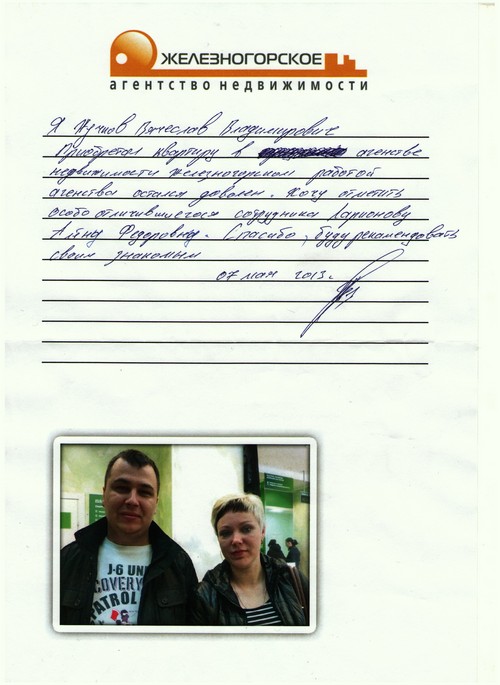 ЖЕЛЕЗНОГОРСКОЕ
агентство недвижимости
Я Вячеслав Владимирович
Приобретал квартиру в агенстве
недвижимости железногорском работой
агенства остался доволен. Хочу отметить
особо отличившегося сотрудника Ларионову
Фёдоровну. Спасибо, буду рекомендовать
своим знакомым
07 мая 2013 г.
J-6 UNI
COVERY
PATROL